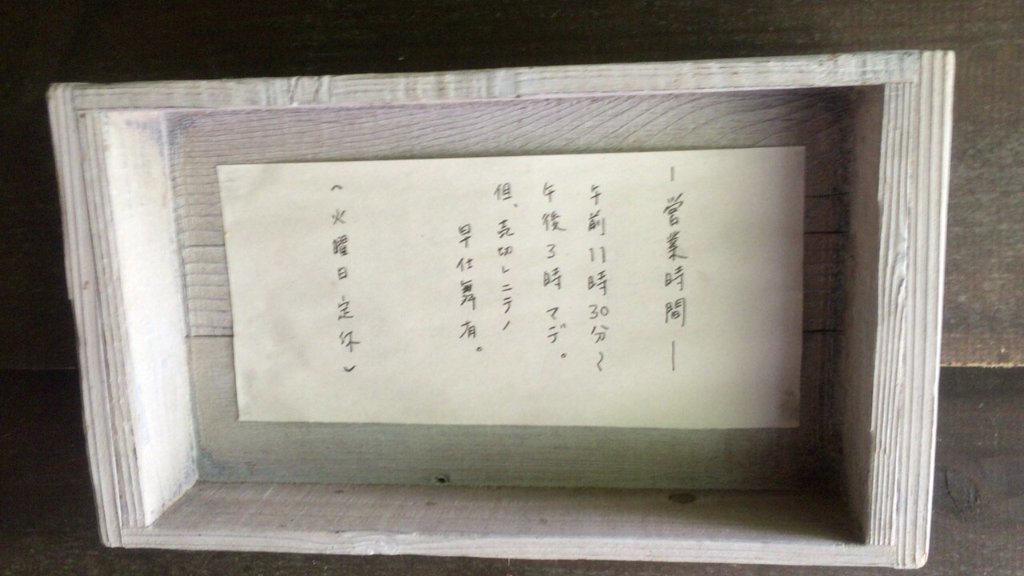 ―営業時間―
午前11時30分〜
午後3時マデ。
但、売切レニテノ
早仕舞有。
〈火曜日定休〉